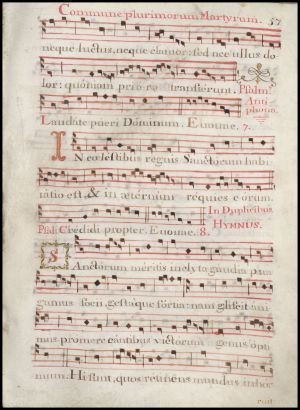 Commune plurimorum Martyrum. 57
neque luctus, neque clamor: sed nec ullus do
lor: quoniam priora transierunt. Psalm.
Anti
phona.
Laudate pueri Dominum. Evovae. 7.
IN coelestibus regnis Sanctorum habi
tatio est, & in aeternum requies eorum.
In Duplicibus
HYMNUS.
Credidi propter. Evovae. 8.
SAnctorum meritis inclyta gaudia pan
gamus socii, gestaque fortia: nam gliscit ani
mus promere cantibus victorum genus opti
mum. Hi sunt, quos retinens mundus inhor
ruit